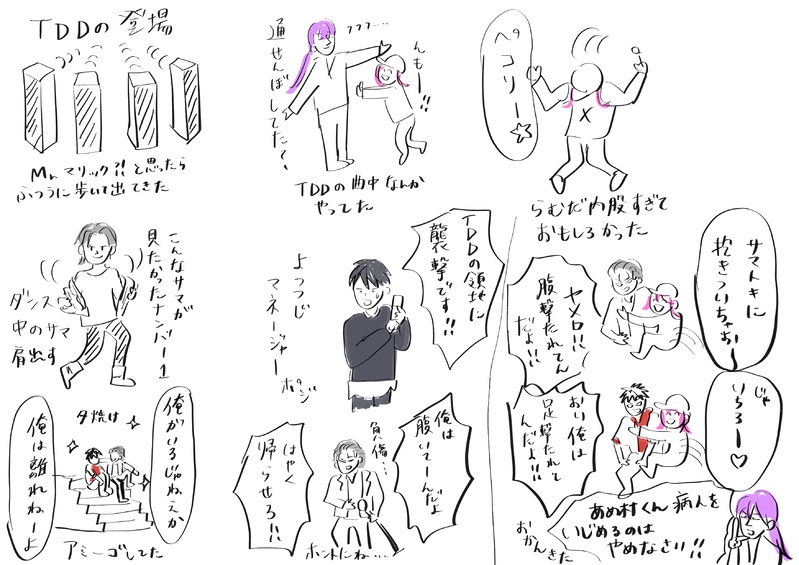 TDDの登場
Mr.マリック?!と思ったら
ふつうに歩いて出てきた
通せんぼしてたて、
フフフ…
んもー!!
TDDの曲中なんか
やってた
ペコリー☆
X
らむだ内股すぎて
おもしろかった
こんなサマが
見たかったナンバー1
ダンス
中のサマ
肩出す
TDDの領地に
襲撃です!!
よつつじ
マネージャー
ポジ
サマトキに
抱きついちゃおー
ヤメロ!!
腹撃たれてん
だよ!!
じゃ
いちろー♡
おい俺は
足撃たれて
んだよ!!
あめ村くん病人を
いじめるのは
やめなさい!!
おかんきた
俺がいるじゃねぇか
夕焼け
俺は離れねーよ
アミーゴしてた
俺は
腹いてーんだよ
負傷…
はやく
帰らせろ!!
ホントにね…